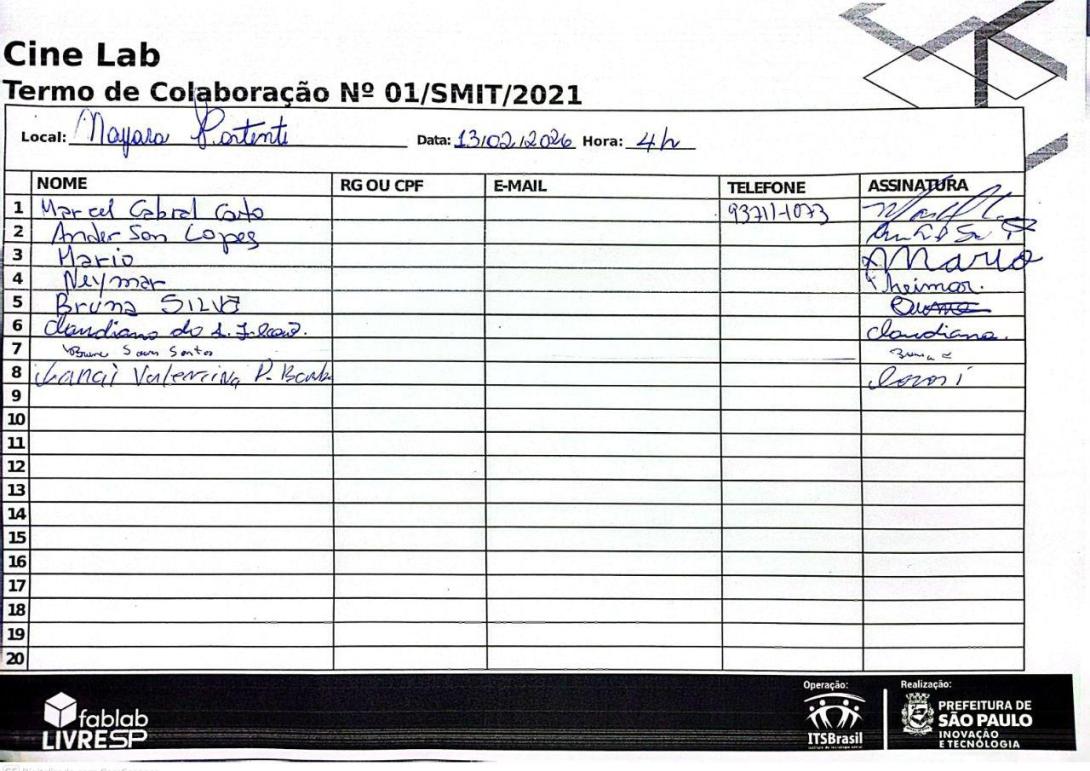 Cine Lab
Termo de Colaboração Nº 01/SMIT/2021
Local: Nayara Data: 13/02/2026 Hora: 4h
NOME RG OU CPF E-MAIL TELEFONE ASSINATURA
1 Marcel Cabral 93711-1073
2 Anderson Lopes
3 Mario Mario
4 Neymar
5 Bruna SILVA
6 Claudiano do Claudiano.
7 Santos
8 Valentina P.
9
10
11
12
13
14
15
16
17
18
19
20
fablab
LIVRESP
Operação:
ITSBrasil
Realização:
PREFEITURA DE
SÃO PAULO
INOVAÇÃO
E TECNOLOGIA